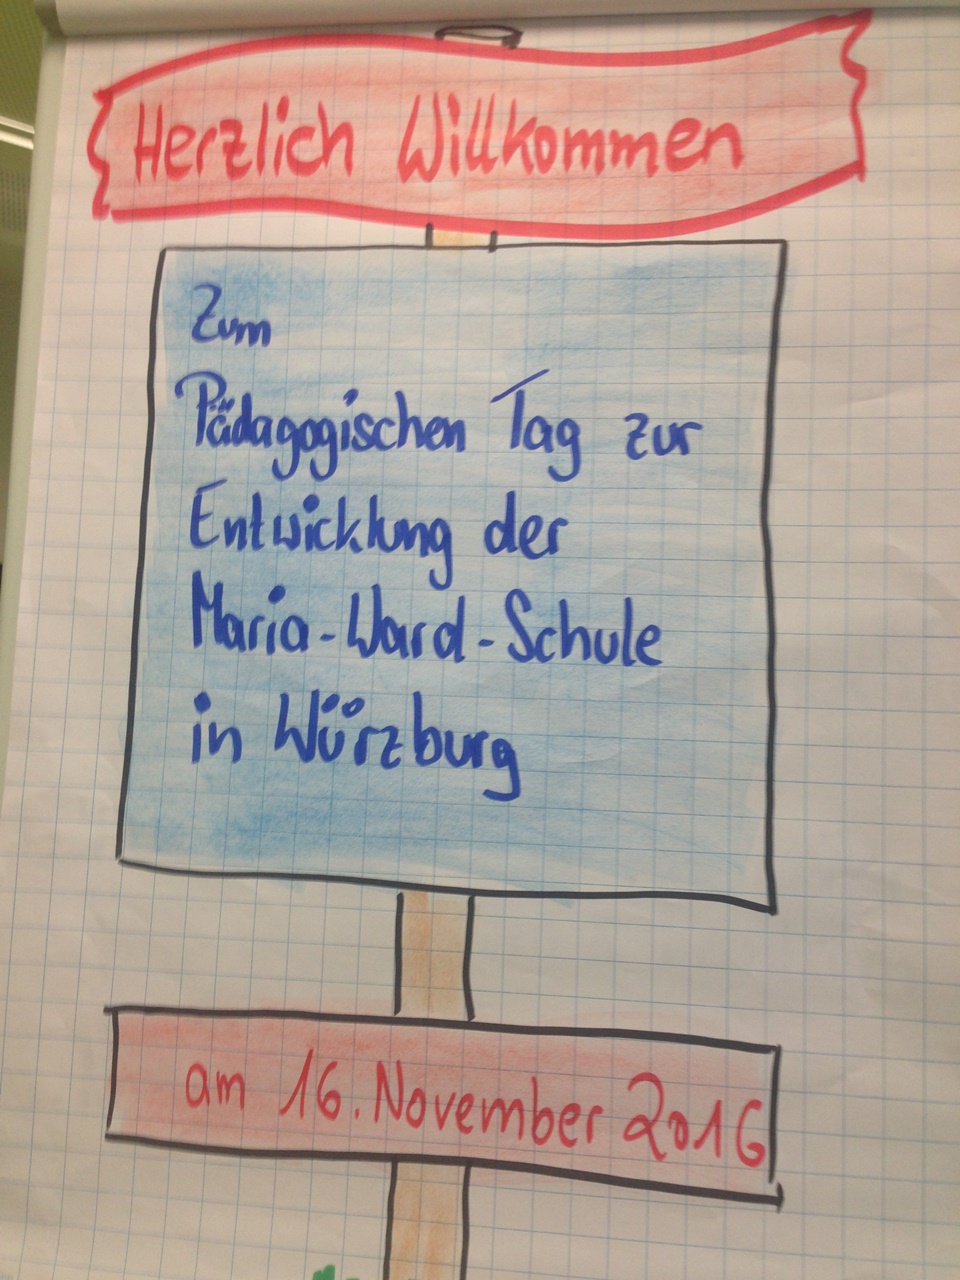 Herzlich Willkommen
Zum
Pädagogischen Tag zur
Entwicklung der
Maria-Ward-Schule
in Würzburg
am 16. November 2016